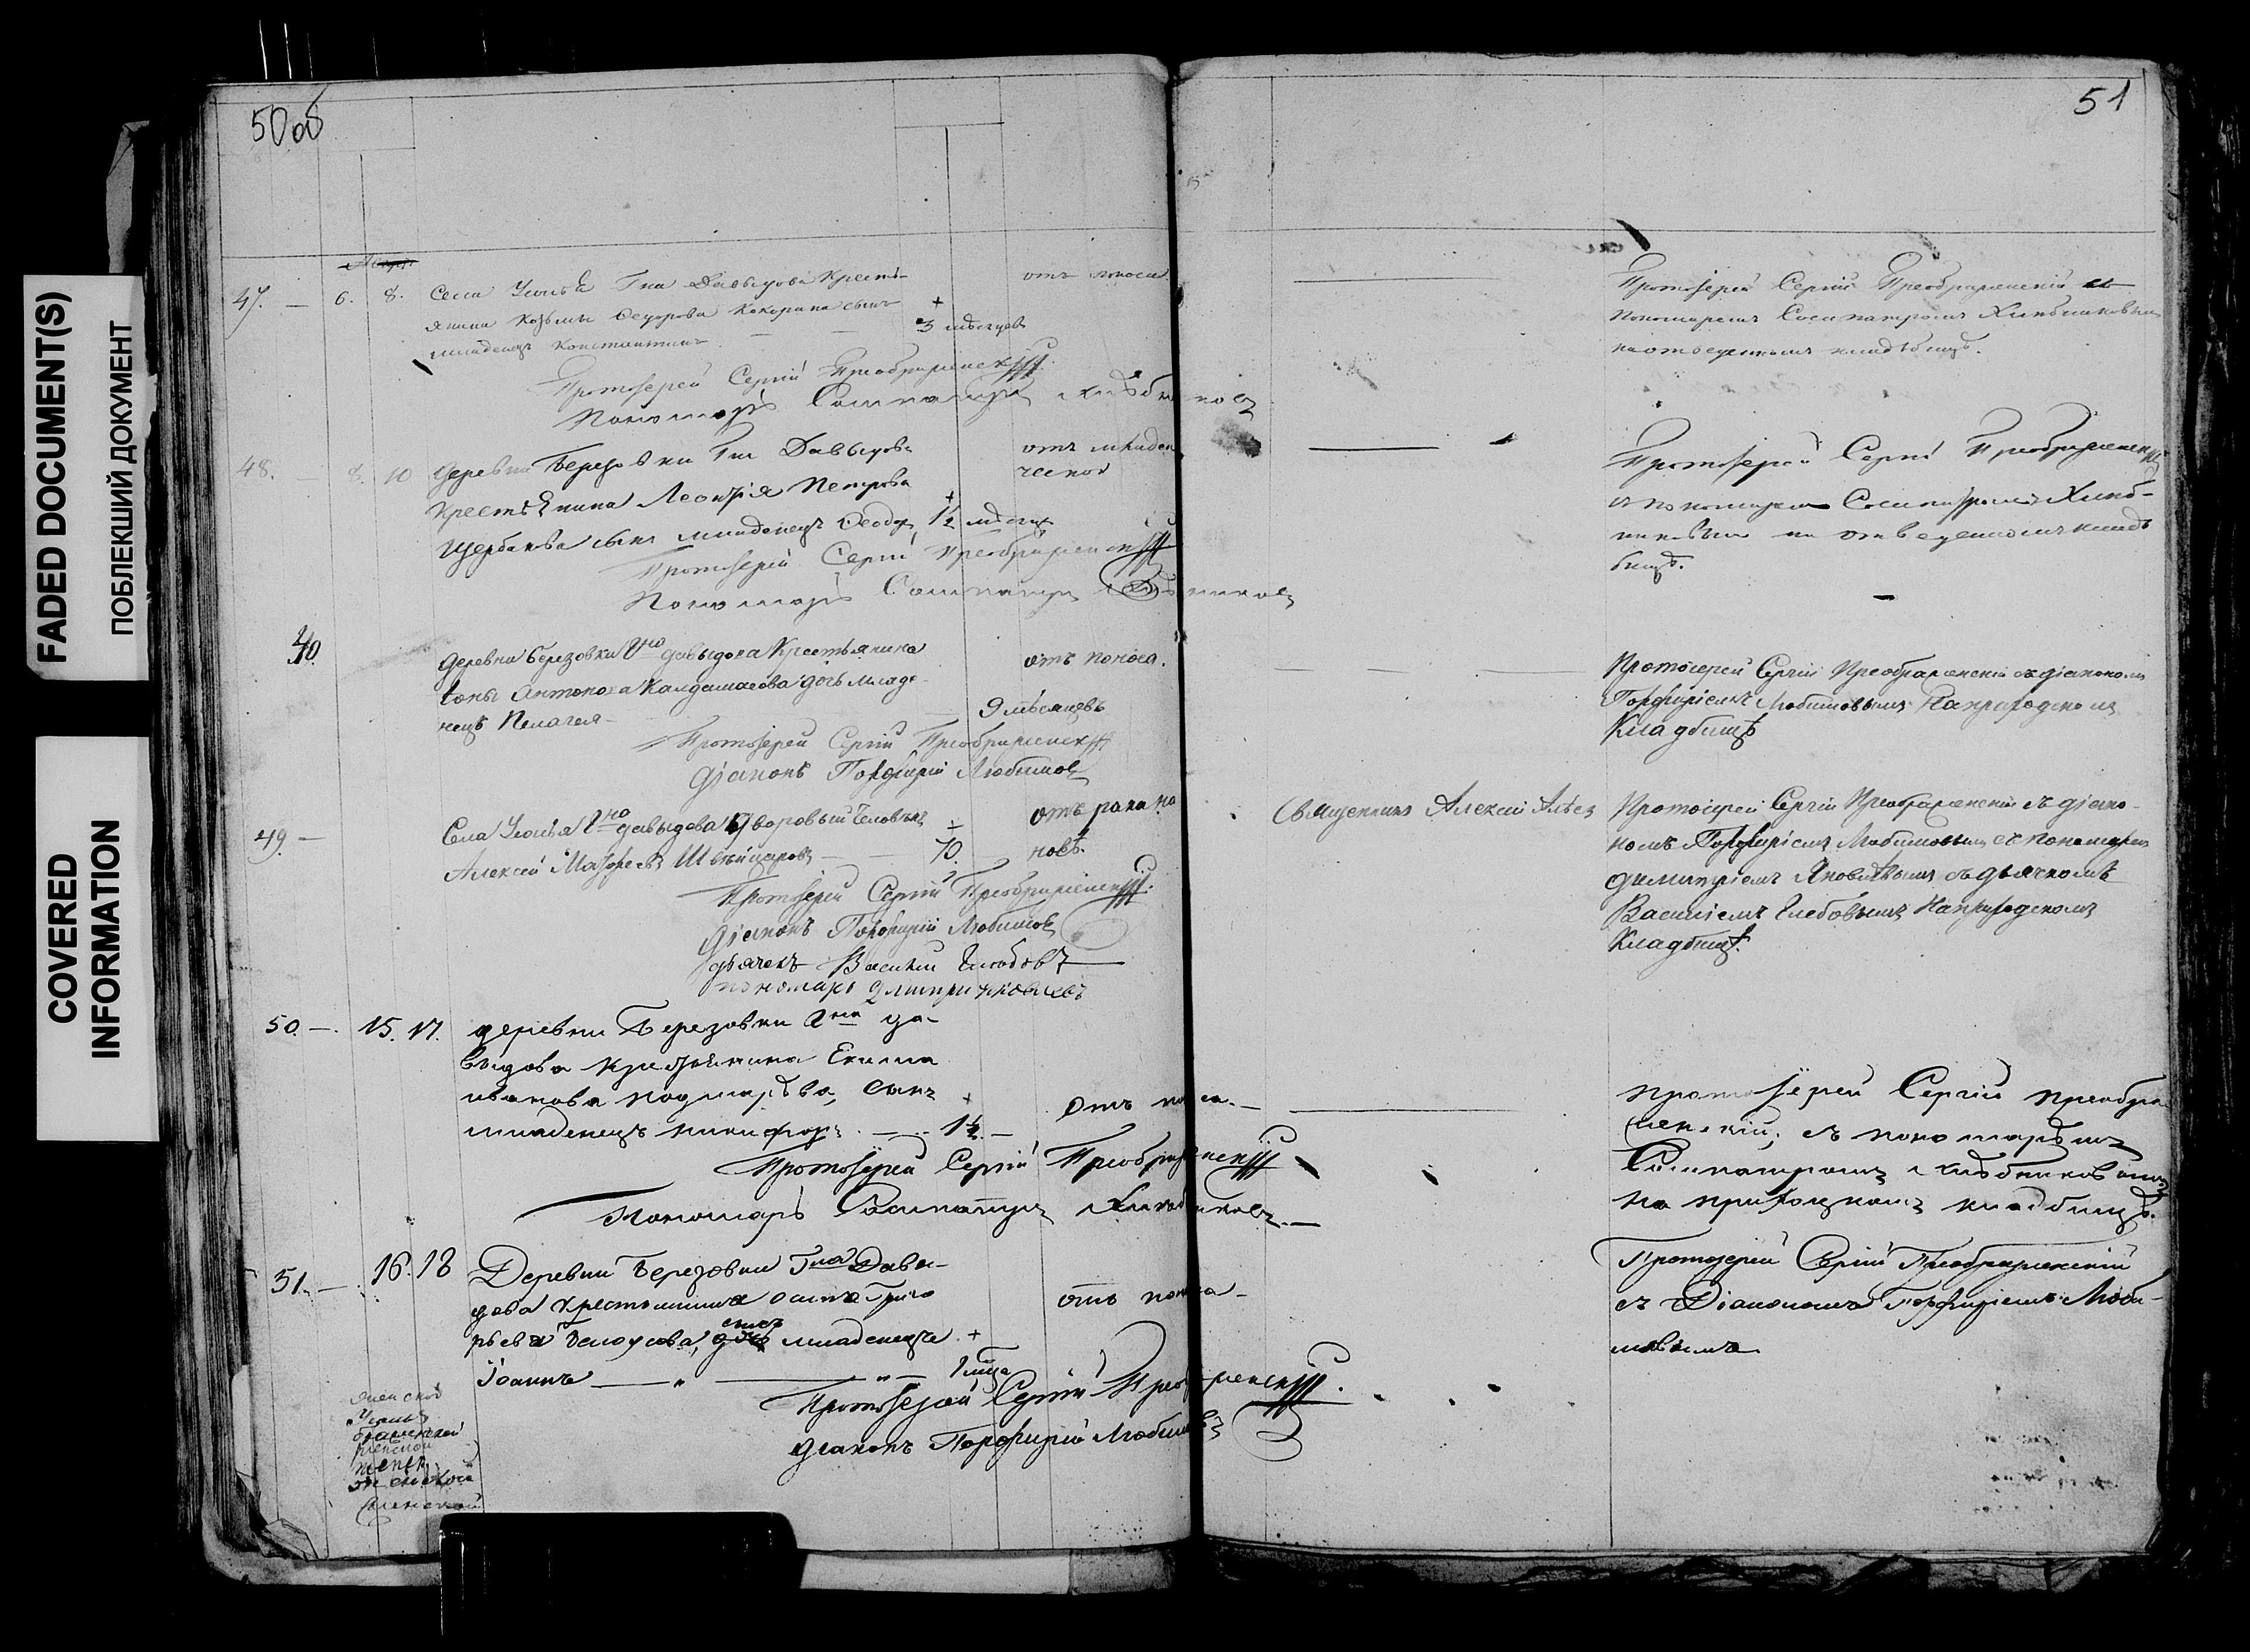 FADED DOCUMENT(S)
ПОБЛЕКШИЙ ДОКУМЕНТ
COVERED
INFORMATION
50 об
51
47. — 6. 8. Села Усолья Гна Давыдова Кресть-
янина Козьмы Федорова Кокорина сынъ
младенецъ Константинъ.
3 мѣсяцев
отъ поноса
Протоіерей Сергій Преображенскій
Пономарь Сосипатръ Хлѣбниковъ
Протоіерей Сергій Преображенскій съ
пономаремъ Сосипатромъ Хлѣбниковымъ
на отведенномъ кладбищѣ.
48. — 8. 10 деревни Березовки Гна Давыдова
крестьянина Леонтія Петрова
Щербакова сынъ младенецъ Феодоръ 1½ мѣсяца
отъ младен
ческой
Протоіерей Сергій Преображенскій
Пономарь Сосипатръ Хлѣбниковъ
Протоіерей Сергій Преображенскій
съ пономаремъ Сосипатромъ Хлѣб-
никовымъ на отведенномъ клад
бищѣ.
40.
деревни березовки Гна давыдова Крестьянина
Антонова дочь младе-
нецъ Пелагея
9 мѣсяцевъ
отъ поноса.
Протоіерей Сергій Преображенскій
діаконъ Порфирій Любимовъ
Протоіерей Сергій Преображенскій съ діакономъ
Порфиріемъ Любимовымъ На приходскомъ
Кладбищѣ
49. —
Села Усолья Гна давыдова Дворовый человѣкъ
Алексей Матфеевъ Швейцаровъ — 70.
отъ рака на
Священникъ Алексій
Протоіерей Сергій Преображенскій
Діаконъ Порфирій Любимовъ
дьячекъ Василий Глебовъ
пономарь Дмитрий
Протоіерей Сергій Преображенскій съ діако-
номъ Порфиріемъ Любимовымъ съ пономаремъ
димитріемъ съ дьячкомъ
Василіемъ Глебовымъ На приходскомъ
Кладбищѣ.
50. — 15. 17. деревни Березовки Гна да-
выдова крестьянина Екима
иванова сынъ
младенецъ никифоръ. — 1½ —
отъ поноса. —
Протоіерей Сергій Преображенскій
Пономарь Сосипатръ Хлѣбниковъ. —
протоіерей Сергій преобра
женскій, съ пономаремъ
Сосипатромъ Хлѣбниковымъ
на приходскомъ кладбищѣ.
51. — 16. 18 Деревни Березовки Гна Давы-
дова крестьянина Григо
рьева Белоусова, сынъ младенецъ
Іоаннъ — 1 мца
отъ поноса —
Протоіерей Сергій Преображенскій
діаконъ Порфирій Любимовъ
Протоіерей Сергій Преображенскій
съ Діакономъ Порфиріемъ Люби-
мовымъ